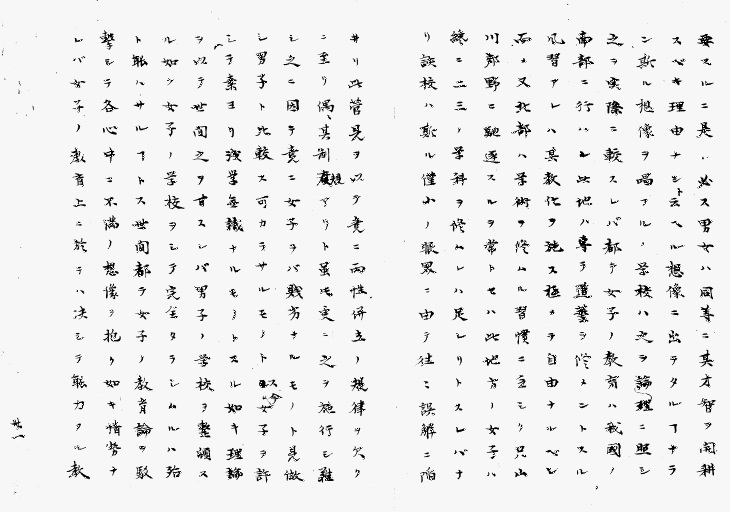 要スルニ是レ必ス男女ハ同等ニ其才智ヲ開耕
スベキ理由ナシト云ヘル想像ニ出テタルヿナラ
ン斯ル想像ヲ唱フルノ学校ハ之ヲ論理ニ照シ
之ヲ実際ニ較スレバ都テ女子ノ教育ハ我國ノ
南部ニ行ハル此地ハ専ラ道藝ヲ修メントスル
風習アレハ其教化ヲ施ス極メテ自由ナルベシ
而メ又北部ハ学術ヲ修ムル習慣ニ乏シク只山
川郊野ニ馳逐スルヲ常トセハ此地方ノ女子ハ
纔ニ二三ノ学科ヲ修ムレハ足レリトスレバナ
リ該校ハ斯ル僅小ノ眼界ニ由テ往々誤解ニ陥
サリ此管見ヲ以テ竟ニ両性併立ノ規律ヲ欠ク
ニ至リ偶其制規アリト雖モ更ニ之ヲ施行シ難
シ之ニ因テ竟ニ女子ヲバ賤劣ナルモノト見做
シ男子ト比較ス可カラサルモノトス今女子ヲ許
シテ素ヨリ浅学無識ナルモノトスル如キ理論
ヲ以テ世間之ヲ育スレバ男子ノ学校ヲ整頓ス
ル如ク女子ノ学校ヲシテ完全タラシムルハ殆
ト能ハサルヿトス世間都テ女子ノ教育論ヲ駁
撃シテ各心中ニ不満ノ想像ヲ抱ク如キ情勢ナ
レバ女子ノ教育上ニ於テハ决シテ転力タル教